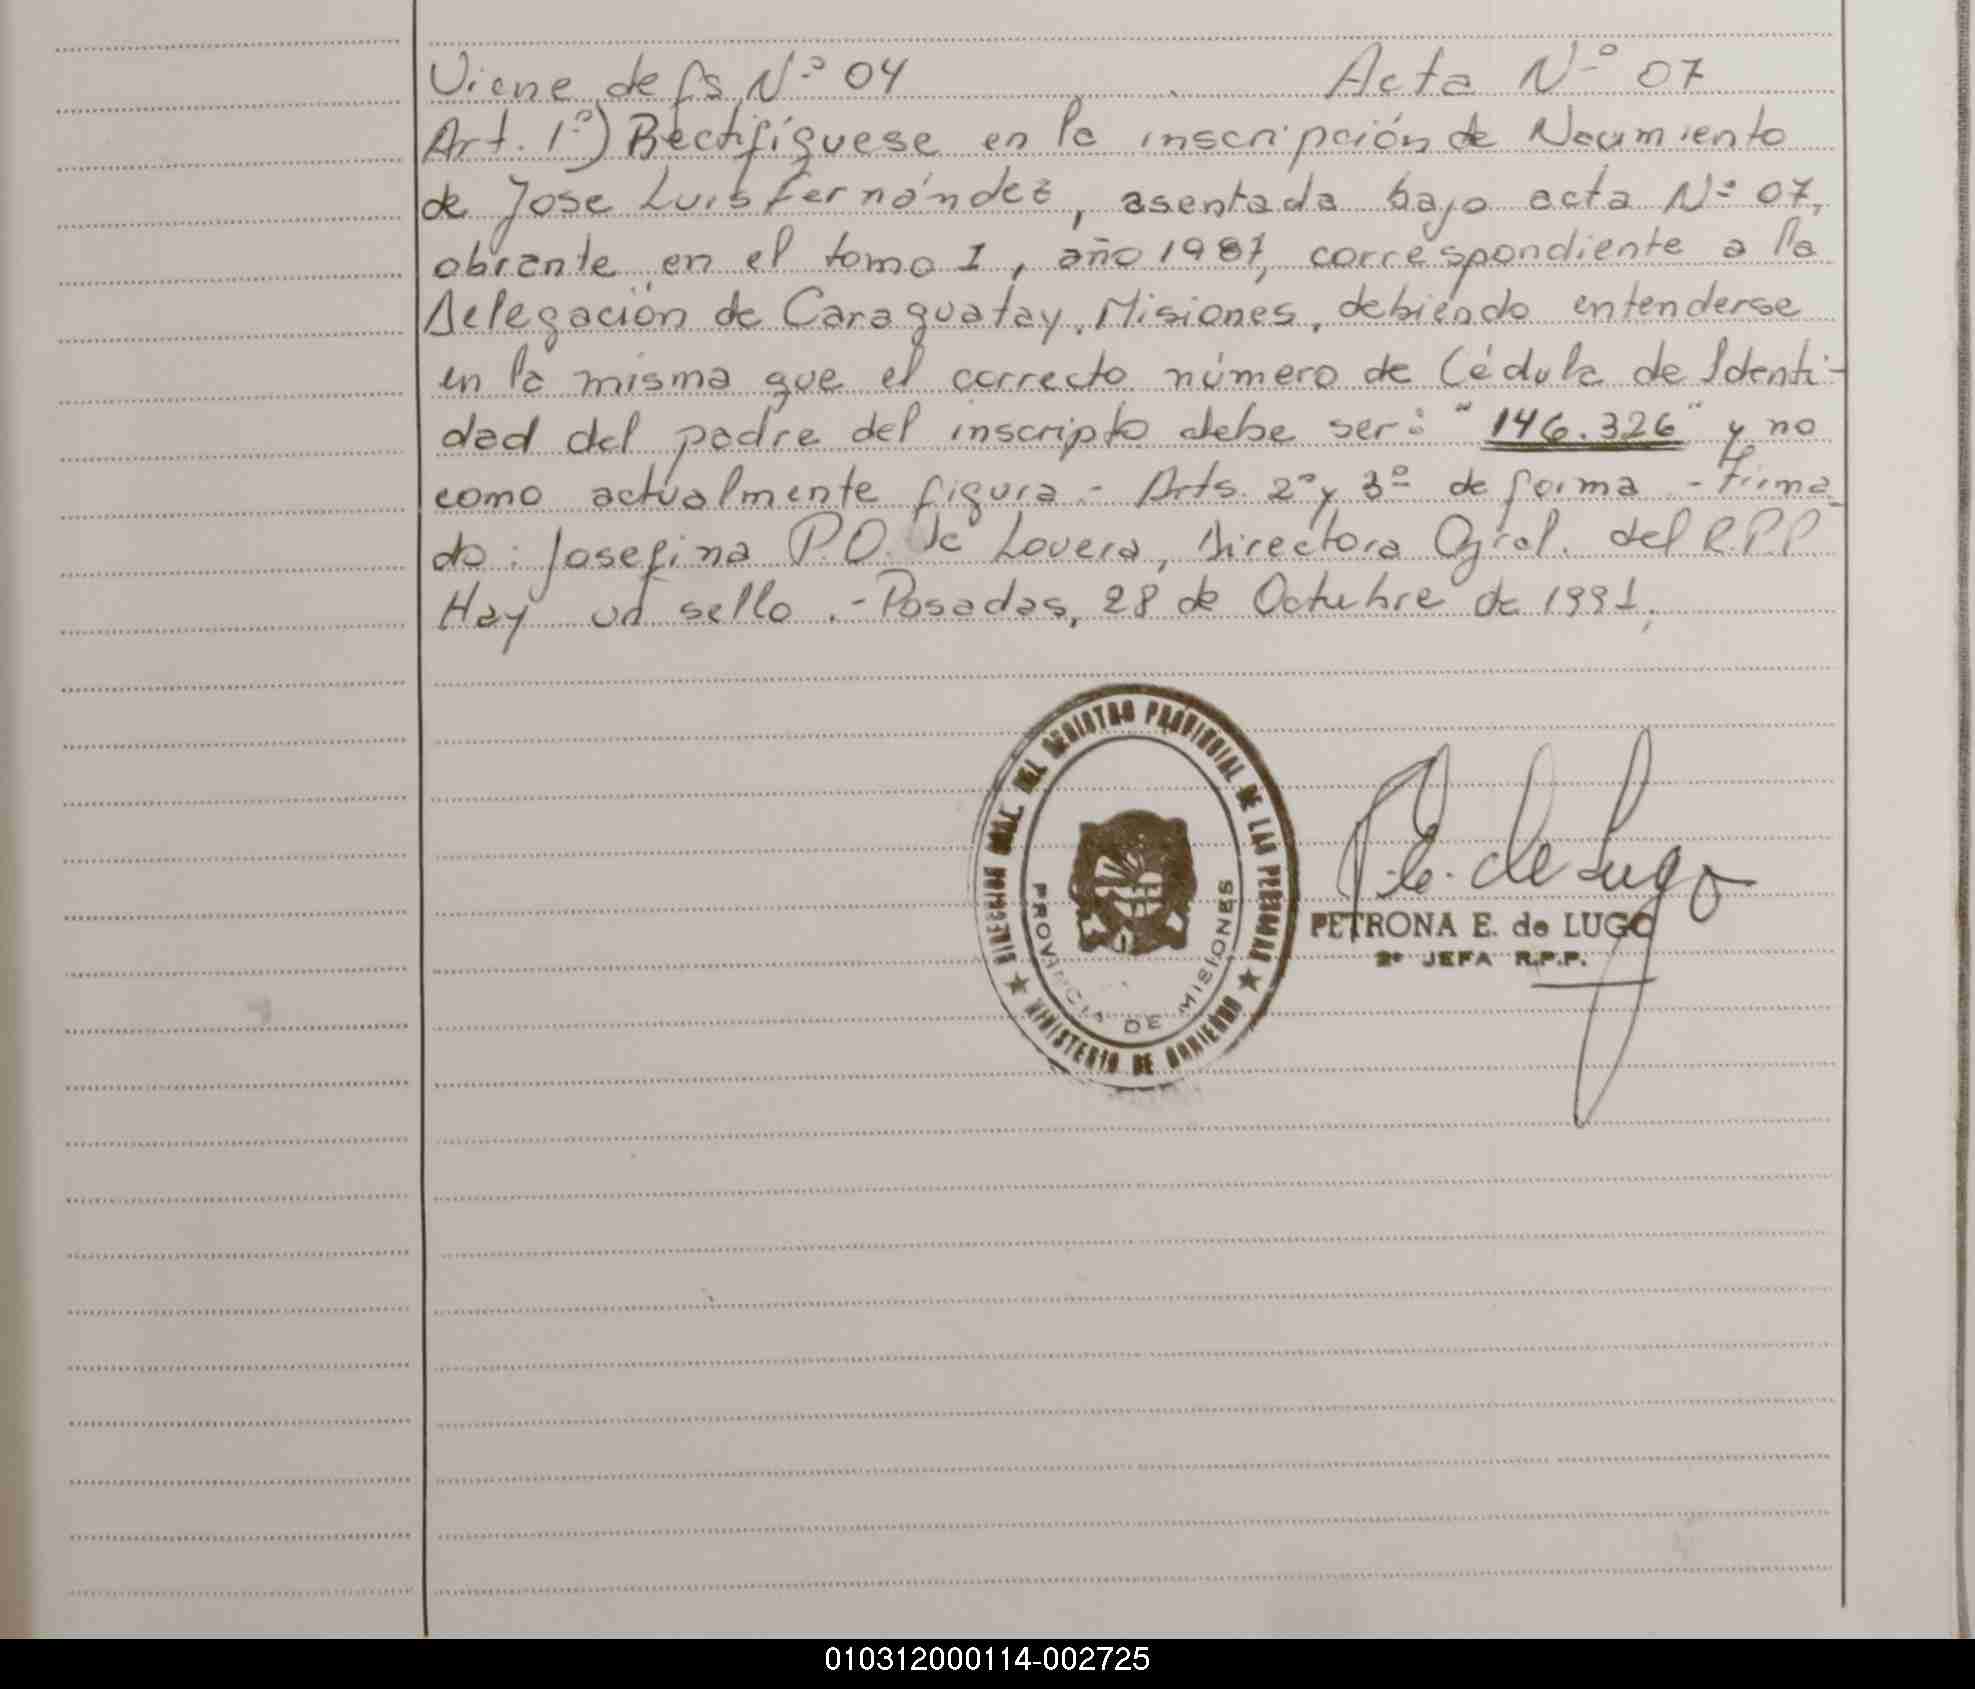 Viene de fs Nº 04 Acta Nº 07
Art. 1º) Rectifíquese en la inscripción de Nacimiento
de Jose Luis Fernández, asentada bajo acta Nº 07,
obrante en el tomo I, año 1987, correspondiente a la
Delegación de Caraguatay, Misiones, debiéndo entenderse
en la misma que el correcto número de Cédula de Identi-
dad del padre del inscripto debe ser: "146.326" y no
como actualmente figura.- Arts. 2º y 3º de forma.- Firma-
do: Josefina P.O. de Lovera, Directora Gral. del R.P.P
Hay un sello.- Posadas, 28 de Octubre de 1991.
DIRECCION GRAL. DEL REGISTRO PROVINCIAL DE LAS PERSONAS
★ MINISTERIO DE GOBIERNO ★
PROVINCIA DE MISIONES
P.E. de Lugo
PETRONA E. de LUGO
2º JEFA R.P.P.
010312000114-002725